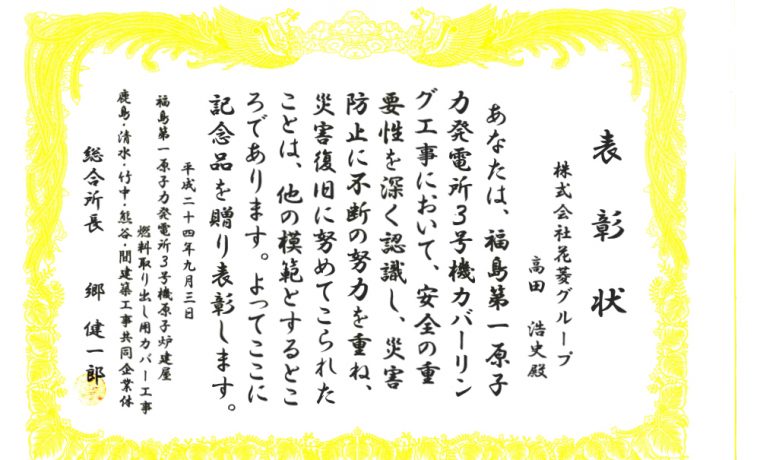 表彰状
株式会社花菱グループ
高田 浩史殿
あなたは、福島第一原子
力発電所3号機カバーリン
グ工事において、安全の重
要性を深く認識し、災害
防止に不断の努力を重ね、
災害復旧に努めてこられた
ことは、他の模範とするとこ
ろであります。よってここに
記念品を贈り表彰します。
平成二十四年九月三日
福島第一原子力発電所3号機原子炉建屋
燃料取り出し用カバー工事
鹿島・清水・竹中・熊谷・間建築工事共同企業体
総合所長 郷 健一郎